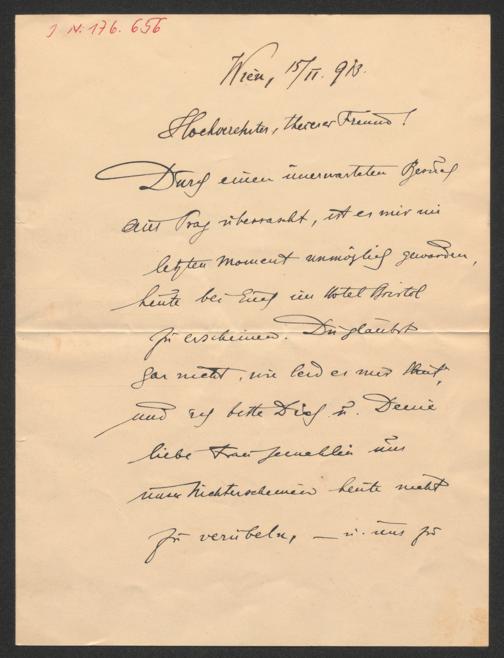 J. N. 176.656
Wien, 15/II. 913.
Hochverehrter, theurer Freund!
Durch einen unerwarteten Besuch
aus Prag überrascht, ist es mir im
letzten Moment unmöglich geworden,
heute bei Euch im Hotel Bristol
zu erscheinen. Du glaubst
gar nicht, wie leid es mir thut,
und ich bitte Dich u. Deine
liebe Frau Gemahlin uns
unser Nichterscheinen heute nicht
zu verübeln, — u. uns zu